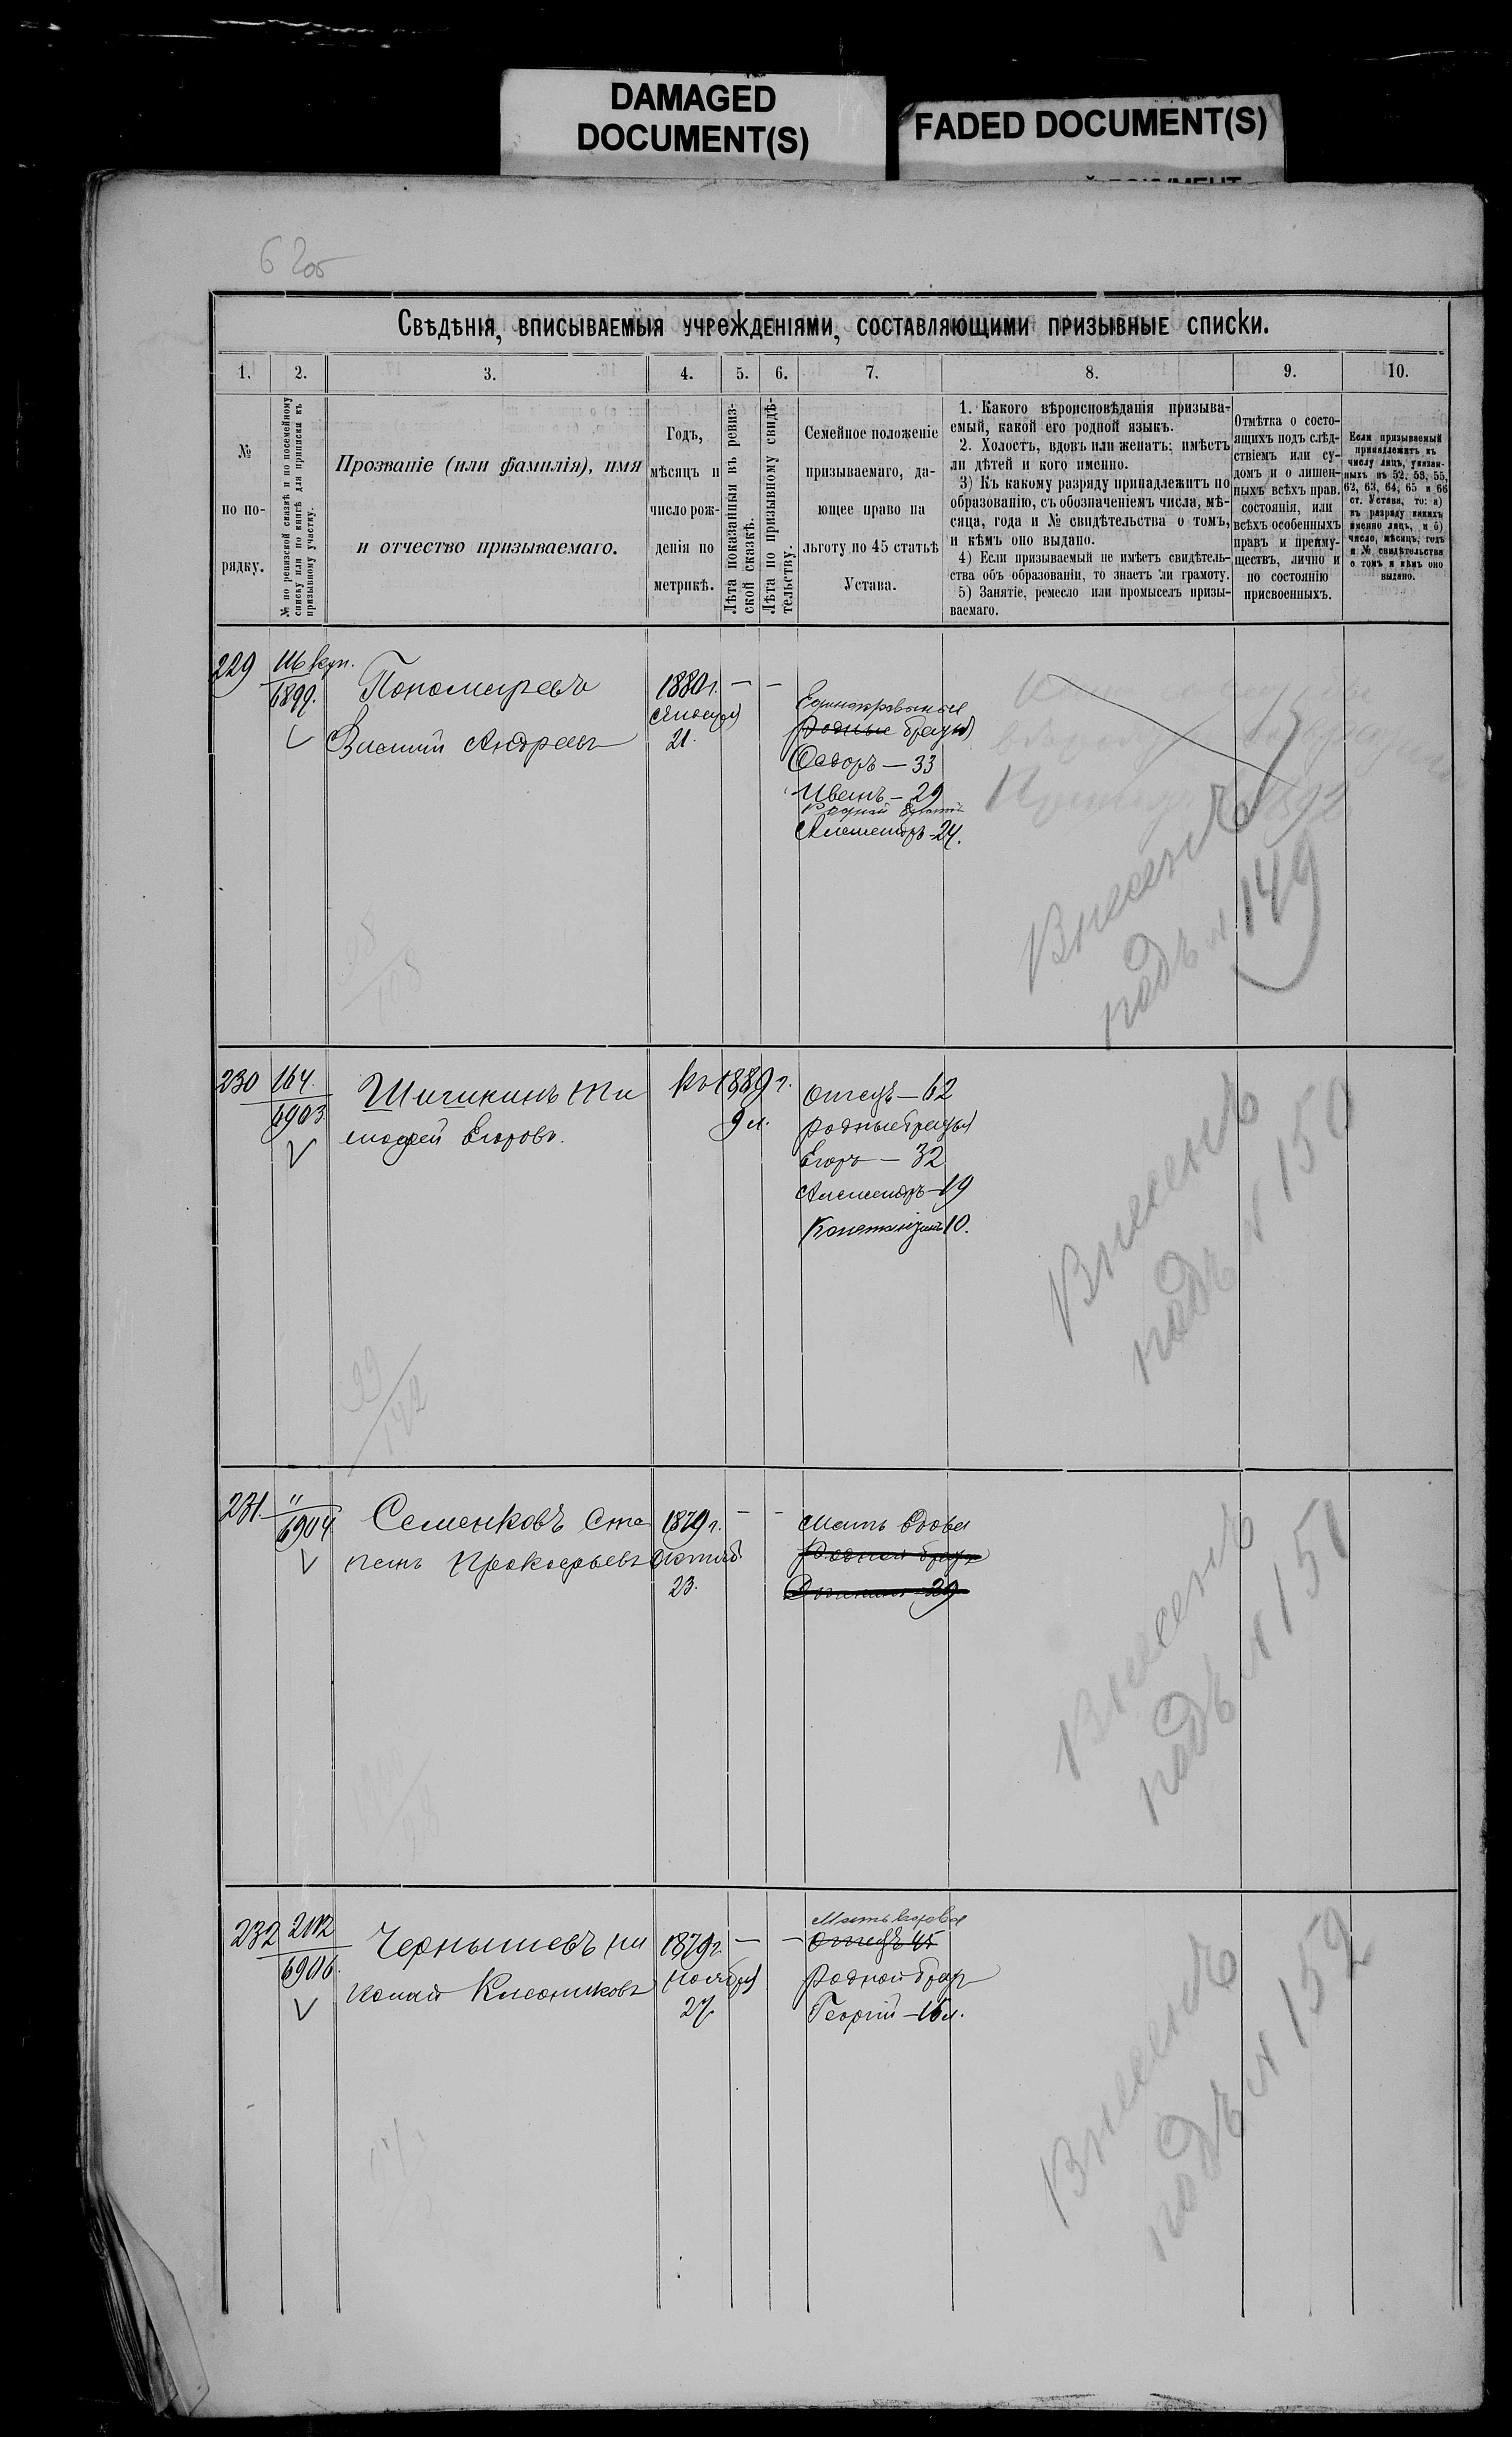 DAMAGED
DOCUMENT(S)
FADED DOCUMENT(S)
62об
Свѣдѣнія, вписываемыя учрежденіями, составляющими призывные списки.
1. 2. 3. 4. 5. 6. 7. 8. 9. 10.
№
по по-
рядку.
№ по ревизской сказкѣ и по посемейному
списку или по книгѣ для приписки къ
призывному участку.
Прозваніе (или фамилія), имя
и отчество призываемаго.
Годъ,
мѣсяцъ и
число рож-
денія по
метрикѣ.
Лѣта показанныя въ ревиз-
ской сказкѣ.
Лѣта по призывному свидѣ-
тельству.
Семейное положеніе
призываемаго, да-
ющее право на
льготу по 45 статьѣ
Устава.
1. Какого вѣроисповѣданія призыва-
емый, какой его родной языкъ.
2. Холостъ, вдовъ или женатъ; имѣетъ
ли дѣтей и кого именно.
3) Къ какому разряду принадлежитъ по
образованію, съ обозначеніемъ числа, мѣ-
сяца, года и № свидѣтельства о томъ,
и кѣмъ оно выдано.
4) Если призываемый не имѣетъ свидѣтель-
ства объ образованіи, то знаетъ ли грамоту.
5) Занятіе, ремесло или промыселъ призы-
ваемаго.
Отмѣтка о состо-
ящихъ подъ слѣд-
ствіемъ или су-
домъ и о лишен-
ныхъ всѣхъ прав.
состоянія, или
всѣхъ особенныхъ
правъ и преиму-
ществъ, лично и
по состоянію
присвоенныхъ.
Если призываемый
принадлежитъ къ
числу лицъ, указан-
ныхъ въ 52, 53, 55,
62, 63, 64, 65 и 66
ст. Устава, то: а)
къ разряду какихъ
именно лицъ, и б)
число, мѣсяцъ, годъ
и № свидѣтельства
о томъ и кѣмъ оно
выдано.
229
6899.
Пономаревъ
Василій Андреевъ
1880 г.
Января
21.
— —
Единокровные
родные братья
Ѳедоръ — 33
Иванъ — 29
родной братъ
Александръ — 24.
Внесенъ
подъ № 149
230
164.
6903
Шишкинъ Ти
мофей Егоровъ.
Къ 1889 г.
9 л.
отецъ — 62
родные братья
Егоръ — 32
Александръ — 19
Константинъ 10.
Внесенъ
подъ № 150
231.
"
6904
Семенковъ Сте
панъ Прокофьевъ
1879 г.
Октяб.
23.
— —
Мать вдова
Родной братъ
29
Внесенъ
подъ № 151
232
2112
6906.
Чернышевъ Ни
колай
1879 г.
Ноября
27
— —
Мать вдова
отецъ 45
родной братъ
Георгій — 16 л.
Внесенъ
подъ № 152